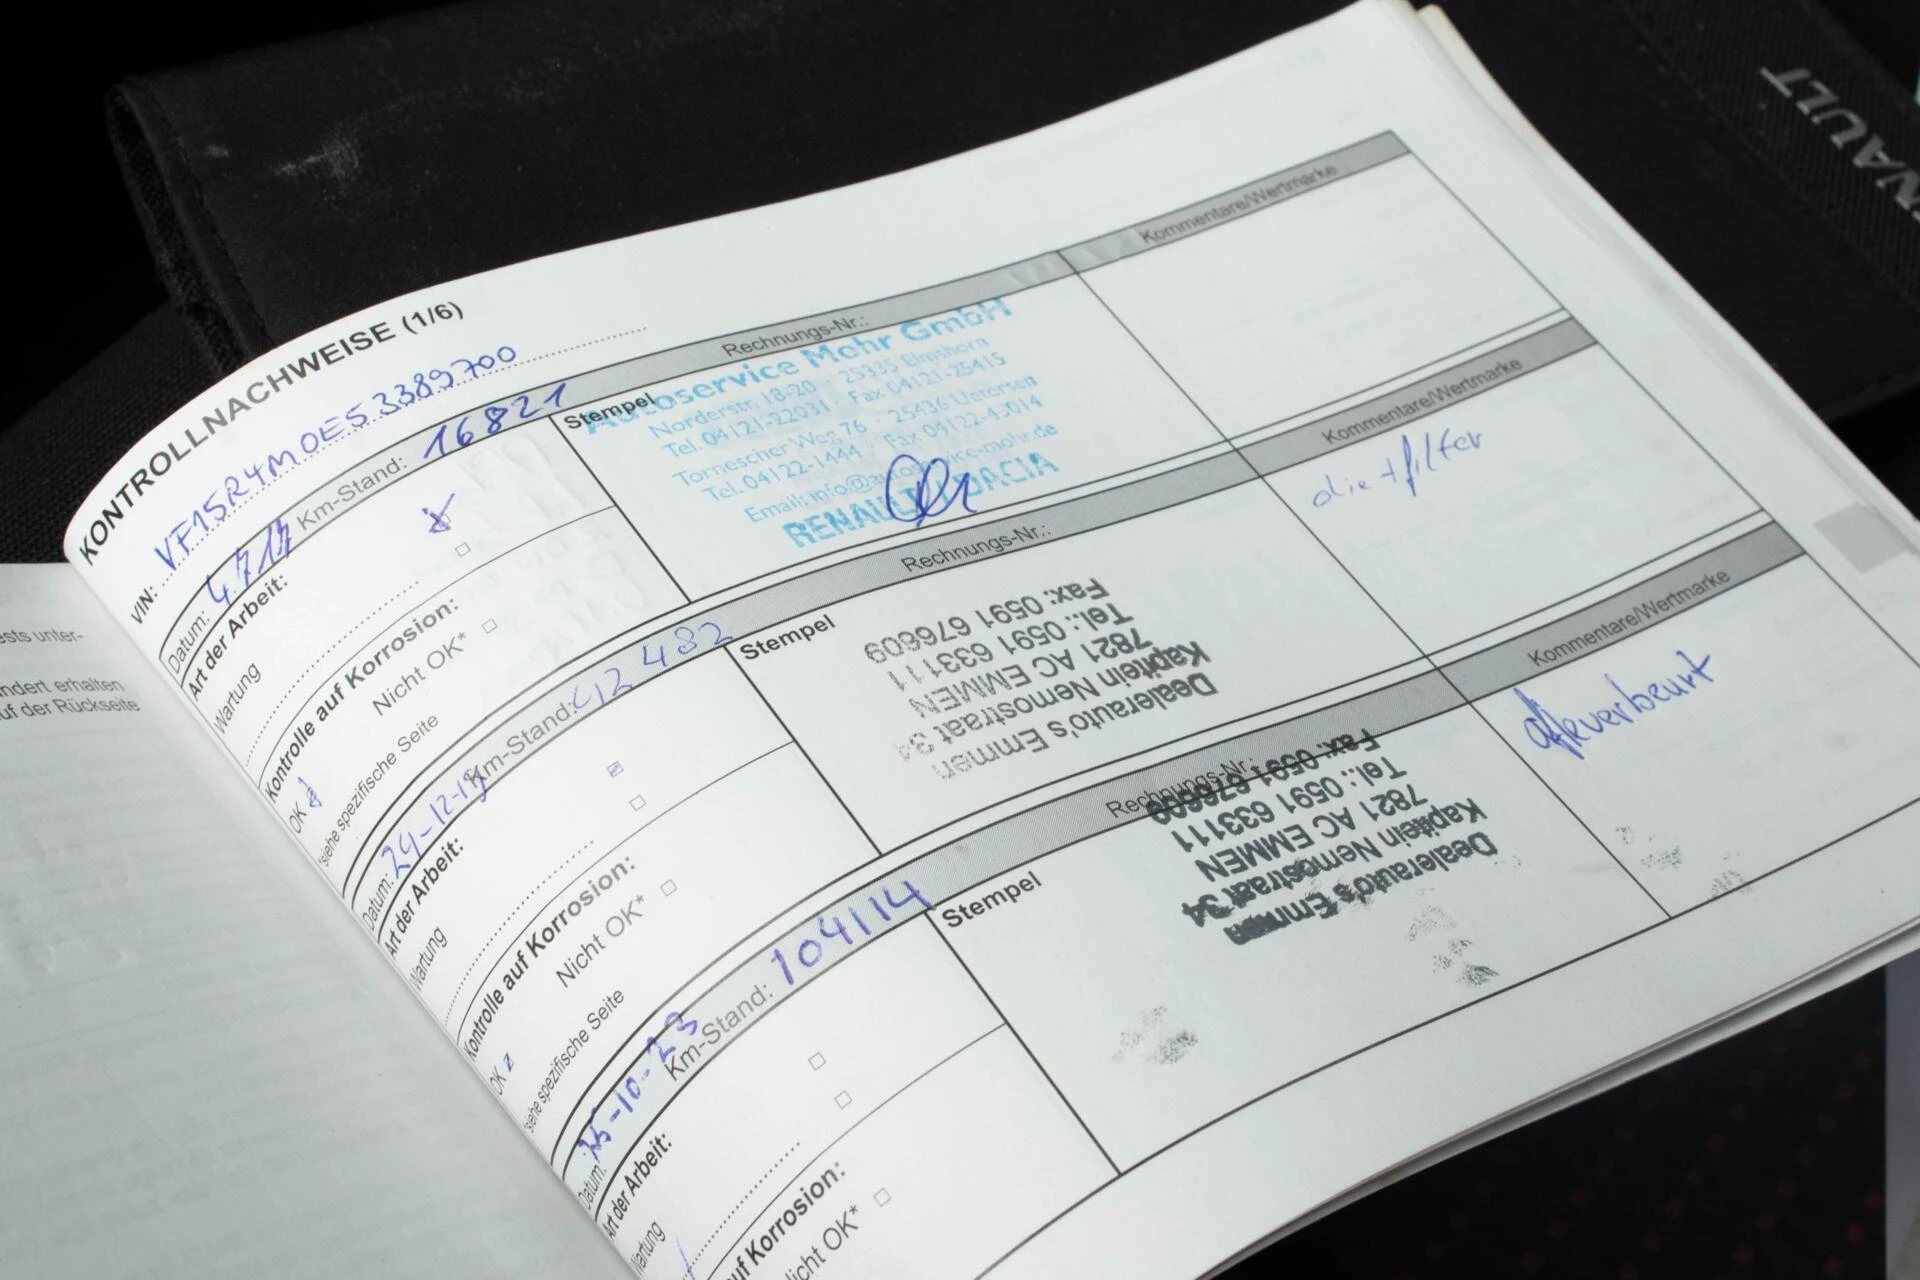 RENAULT
ests unter-
ndert erhalten
uf der Rückseite
KONTROLLNACHWEISE (1/6)
VIN: VF15R4M0E53389700
Datum: 4.7.17 Km-Stand: 16821 Rechnungs-Nr.: Kommentare/Wertmarke
Art der Arbeit:
Wartung
Kontrolle auf Korrosion:
OK Nicht OK*
*siehe spezifische Seite
Stempel
Autoservice Mohr GmbH
Norderstr. 18-20 25335 Elmshorn
Tel. 04121-22031 Fax 04121-25415
Tornescher Weg 76 - 25436 Uetersen
Tel. 04122-1444 Fax 04122-43014
Email: info@autoservice-mohr.de
RENAULT DACIA
Datum: 24-12-19 Km-Stand: 42 482 Rechnungs-Nr.: Kommentare/Wertmarke
Art der Arbeit:
Wartung
Kontrolle auf Korrosion:
OK Nicht OK*
*siehe spezifische Seite
Stempel
Dealerauto's Emmen
Kapitein Nemostraat 34
7821 AC EMMEN
Tel.: 0591 633111
Fax: 0591 676609
olie + filter
Datum: 26-10-23 Km-Stand: 104114 Rechnungs-Nr.: Kommentare/Wertmarke
Art der Arbeit:
Wartung
auf Korrosion:
Nicht OK*
Stempel
Dealerauto's Emmen
Kapitein Nemostraat 34
7821 AC EMMEN
Tel.: 0591 633111
Fax: 0591 676609